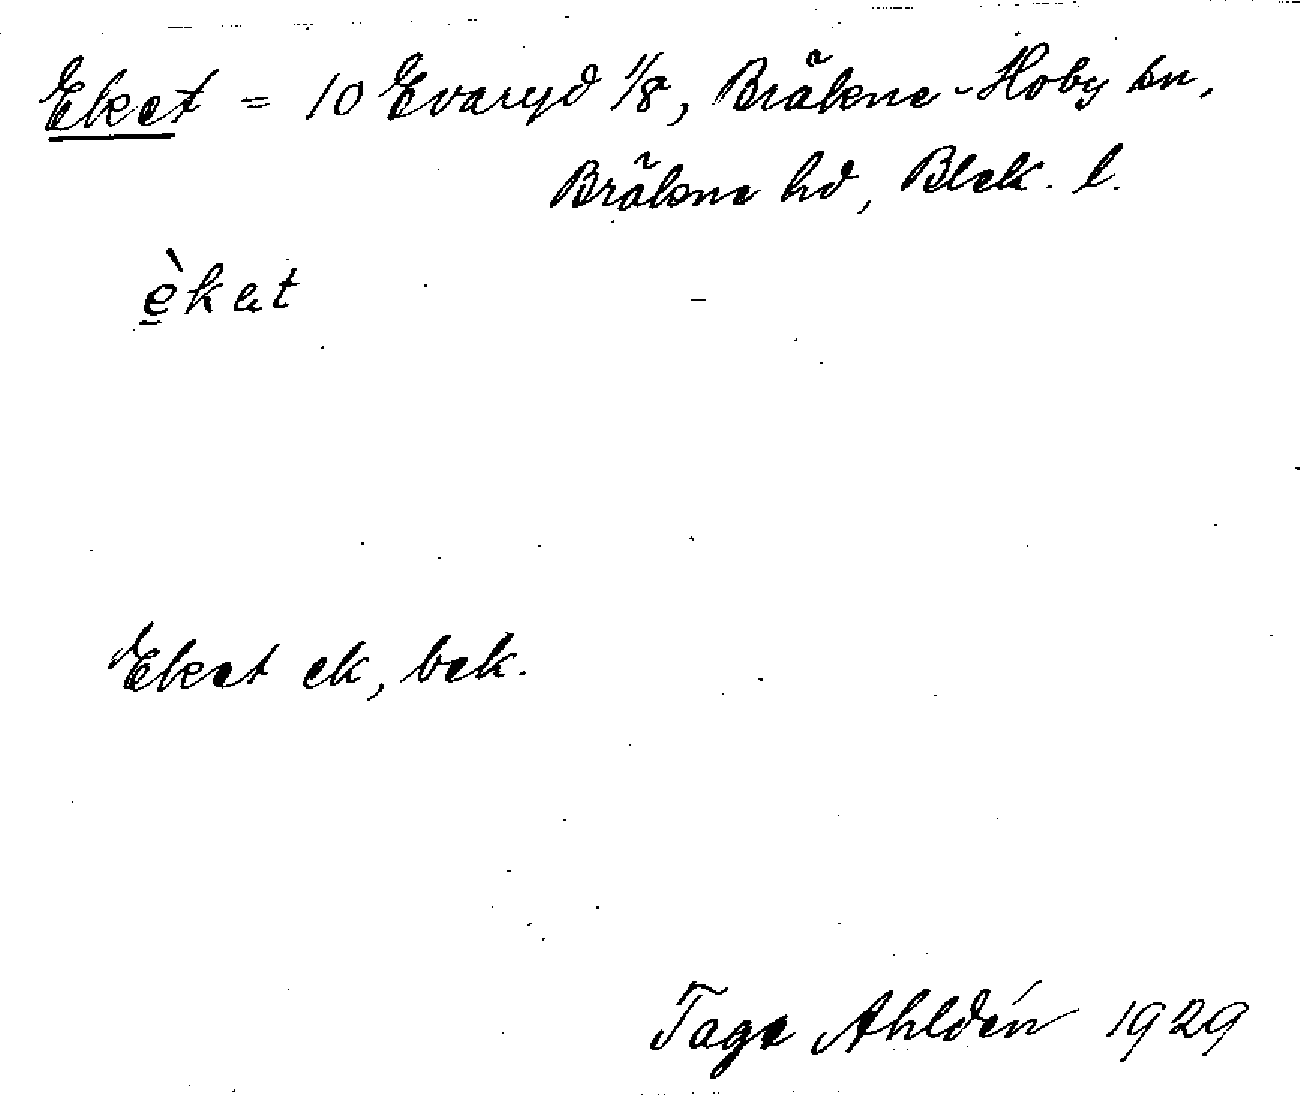 Eket = 10 Evaryd 1/8, Bräkne-Hoby sn,
Bräkne hd, Blek. l.
è̱kat
Eket ek, bek.
Tage Ahldén 1929